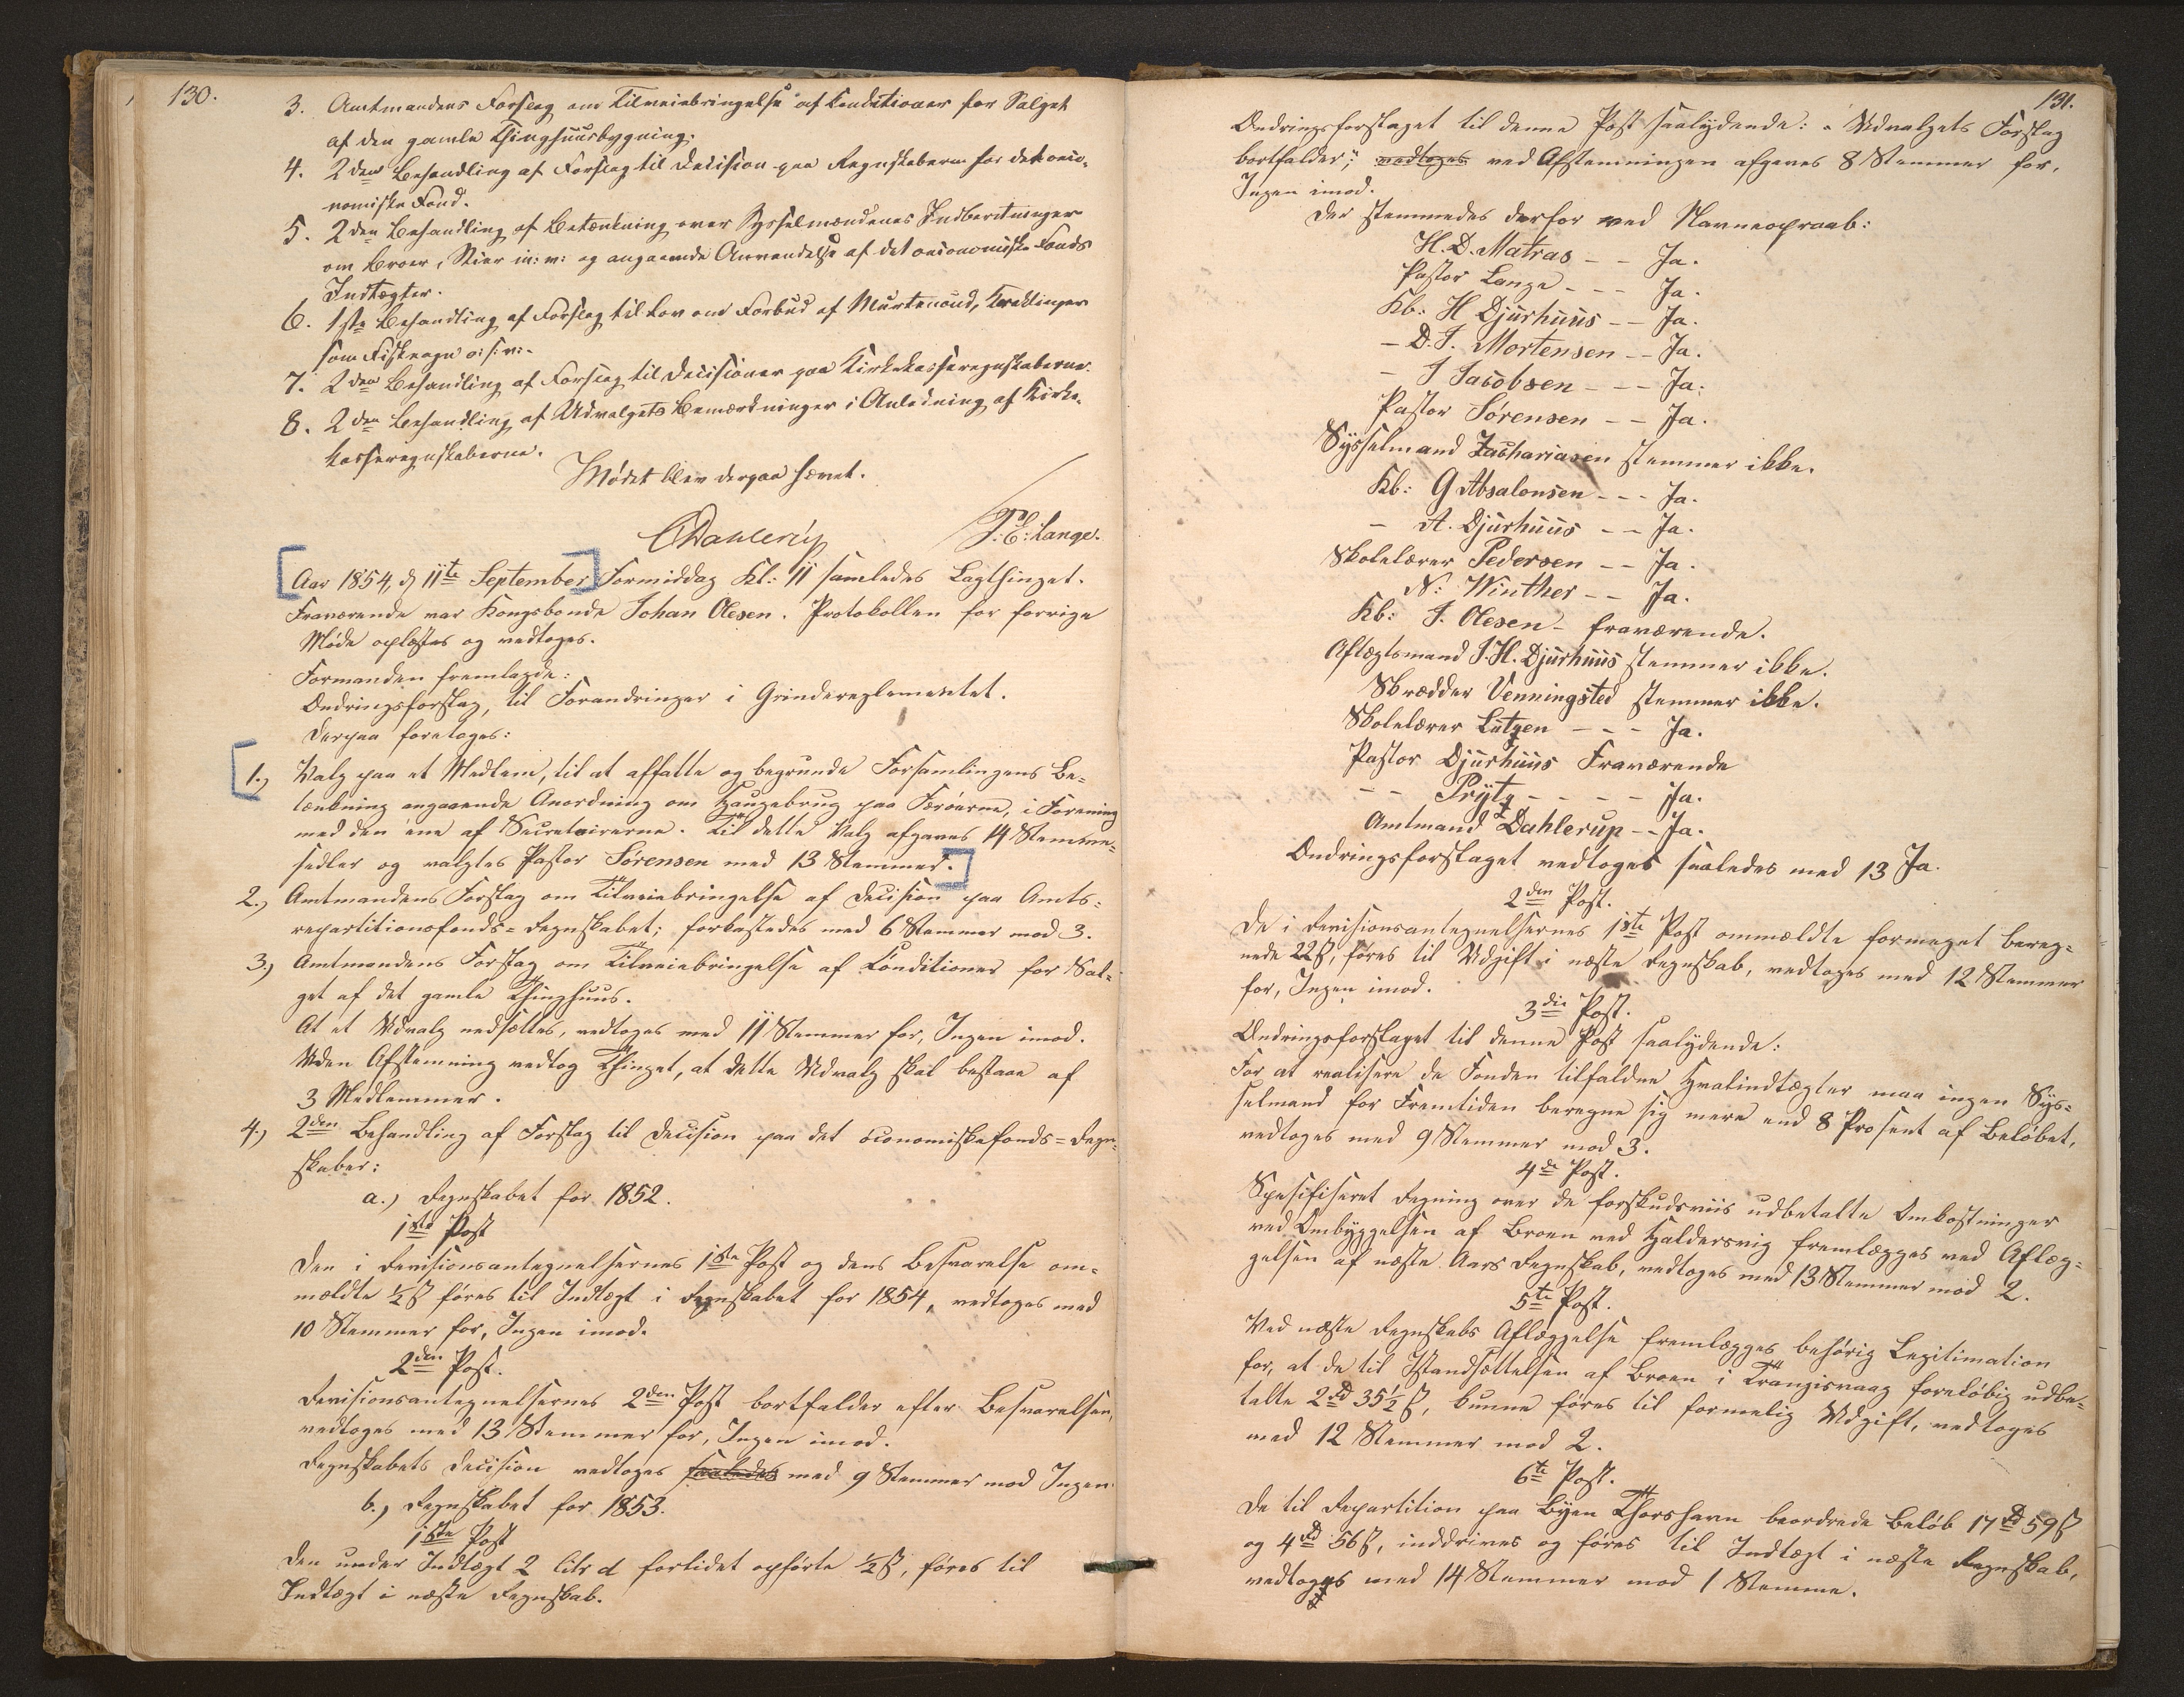 130.
3. Amtmandens Forslag om Tilveiebringelse af Conditioner for Salget
af den gamle Thinghuusbygning.
4. 2den Behandling af Forslag til Decision paa Regnskaberne for det oeco-
nomiske Fond.
5. 2den Behandling af Betænkning over Sysselmændenes Indberetninger
om Broer, Stier m: m: og angaaende Anvendelse af det oeconomiske Fonds
Indtægter.
6. 1ste Behandling af Forslag til Lov om Forbud af Murtenoud, Kræklinger
som Fiskeagn o: s: v: -
7. 2den Behandling af Forslag til Decisioner paa Kirkekasseregnskaberne.
8. 2den Behandling af Udvalgets Bemærkninger i Anledning af Kirke-
kasseregnskaberne.
Mødet blev derpaa hævet.
CDahlerup T: E: Lange.
Aar 1854, d 11te September Formiddag Kl: 11 samledes Lagthinget.
Fraværende var Kongsbonde Johan Olesen. Protokollen for forrige
Møde oplæstes og vedtoges.
Formanden fremlagde:
Ændringsforslag, til Forandringer i Grindereglementet.
Derpaa foretoges:
1.) Valg paa et Medlem, til at affatte og begrunde Forsamlingens Be-
tænkning angaaende Anordning om Haugebrug paa Færøerne, i Forening
med den ene af Secretairerne. Til dette Valg afgaves 14 Stemme-
sedler og valgtes Pastor Sørensen med 13 Stemmer.
2.) Amtmandens Forslag om Tilveiebringelse af Decision paa Amts-
repartitionsfonds-Regnskabet; forkastedes med 6 Stemmer mod 3.
3.) Amtmandens Forslag om Tilveiebringelse af Conditioner for Sal-
get af det gamle Thinghuus.
At et Udvalg nedsættes, vedtoges med 11 Stemmer for, Ingen imod.
Uden Afstemning vedtog Thinget, at dette Udvalg skal bestaae af
3 Medlemmer.
4.) 2den Behandling af Forslag til Decision paa det öconomiskefonds-Regn-
skaber:
a.) Regnskabet for 1852.
1ste Post
Den i Revisionsantegnelsernes 1ste Post og dens Besvarelse om-
meldte ½ ß føres til Indtægt i Regnskabet for 1854, vedtoges med
10 Stemmer for, Ingen imod.
2den Post.
Revisionsantegnelsernes 2den Post bortfalder efter Besvarelsen,
vedtoges med 13 Stemmer for, Ingen imod.
Regnskabets Decision vedtoges saaledes med 9 Stemmer mod Ingen.
b.) Regnskabet for 1853.
1ste Post
Den under Indtægt 2 Litr d forlidet opførte ½ ß, føres til
Indtægt i næste Regnskab.
131.
Ændringsforslaget til denne Post saalydende: "Udvalgets Forslag
bortfalder"; vedtoges ved Afstemningen afgaves 8 Stemmer for,
Ingen imod.
Der stemmedes derfor ved Navneopraab:
H. D. Matras - - Ja.
Pastor Lange - - - Ja.
Kb: H Djurhuus - - Ja.
- D. J. Mortensen - - Ja.
- J Jacobsen - - - Ja.
Pastor Sørensen - - Ja.
Sysselmand Zachariasen stemmer ikke.
Kb: G Absalonsen - - - Ja.
- A. Djurhuus - - Ja.
Skolelærer Pedersen - - Ja.
N: Winther - - Ja.
Kb: J. Olesen - fraværende.
Aftægtsmand J. H. Djurhuus stemmer ikke.
Skrædder Venningsted stemmer ikke.
Skolelærer Lützen - - - Ja.
Pastor Djurhuus Fraværende
- - Prytz - - - - Ja.
Amtmand Dahlerup - - Ja.
Ændringsforslaget vedtoges saaledes med 13 Ja.
2den Post.
De i Revisionsantegnelsernes 1ste Post ommeldte formeget bereg-
nede 22 ß, føres til Udgift i næste Regnskab, vedtoges med 12 Stemmer
for, Ingen imod.
3die Post.
Ændringsforslaget til denne Post saalydende:
For at realisere de Fonden tilfaldne Hvalindtægter maa ingen Sys-
selmand for Fremtiden beregne sig mere end 8 Prosent af Beløbet,
vedtoges med 9 Stemmer mod 3.
4de Post.
Spesifiseret Regning over de forskudsviis udbetalte Omkostninger
ved Ombyggelsen af Broen ved Haldersvig fremlægges ved Aflæg-
gelsen af næste Aars Regnskab, vedtoges med 13 Stemmer mod 2.
5te Post.
Ved næste Regnskabs Aflæggelse fremlægges behörig Legitimation
for, at de til Istandsættelsen af Broen i Trangisvaag foreløbig udbe-
talte 2 rd 35½ ß, kunne føres til formelig Udgift, vedtoges
med 12 Stemmer mod 2.
6te Post.
De til Repartition paa Byen Thorshavn beordrede Beløb 17 rd 59 ß
og 4 rd 56 ß, inddrives og føres til Indtægt i næste Regnskab,
vedtoges med 14 Stemmer mod 1 Stemme.